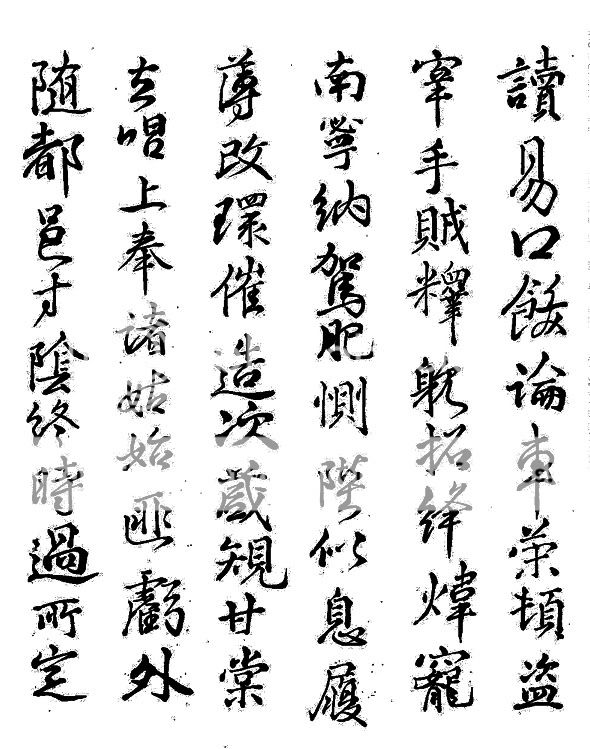 讀易口飯論車榮頓盜
宰手賊釋躭招絳煒寵
南寧納駕肥惻陛似息履
薄改環催造次歲規甘棠
去唱上奉諸姑始匪虧外
随都邑寸陰終時過所定